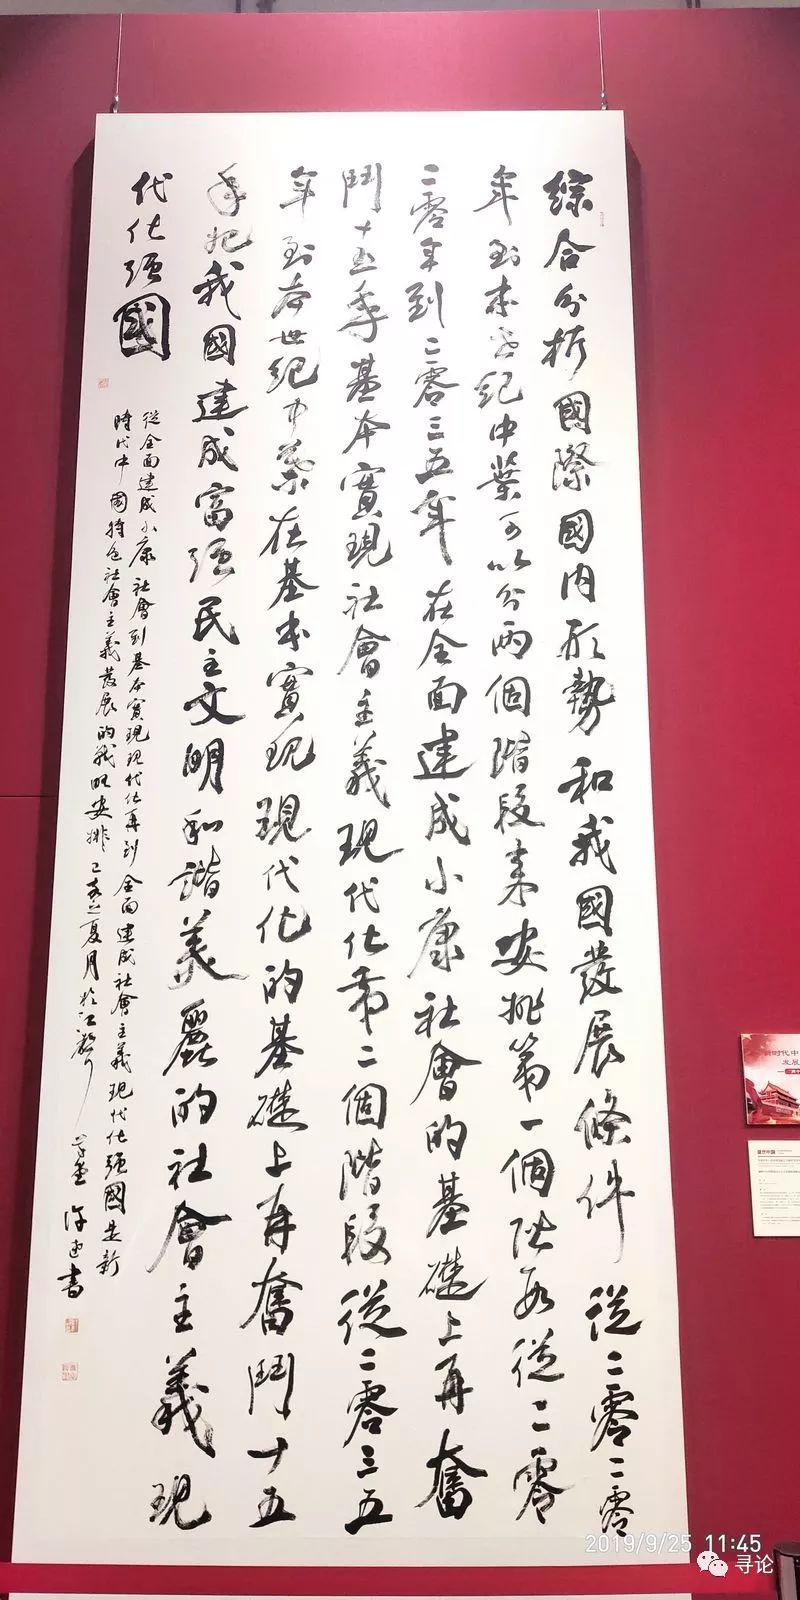 綜合分析國際國内形勢和我國發展條件從二零二零
年到本世紀中葉可以分兩個階段來安排第一個階段從二零
二零年到二零三五年在全面建成小康社會的基礎上再奮
鬥十五年基本實現社會主義現代化第二個階段從二零三五
年到本世紀中葉在基本實現現代化的基礎上再奮鬥十五
年把我國建成富强民主文明和諧美麗的社會主義現
代化强國
從全面建成小康社會到基本實現現代化再到全面建成社會主義現代化强國是新
時代中國特色社會主義發展的戰略安排己亥之夏月於江
書
新时代中
发展
盛世中国
2019/9/25 11:45
寻论